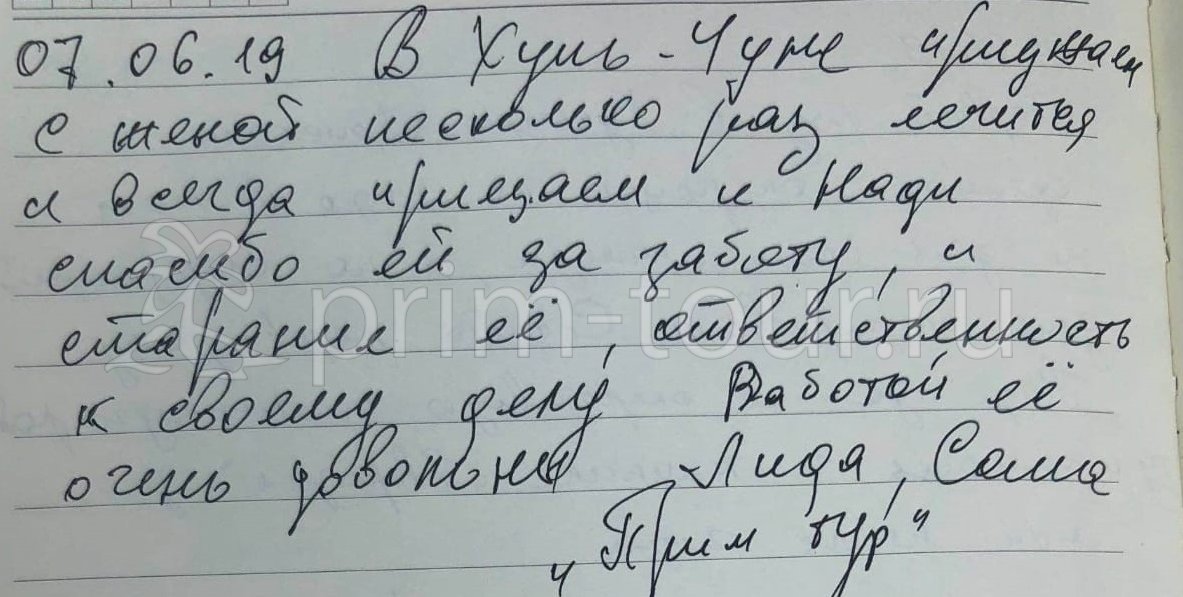 07.06.19 В Хунь-Чуне приезжаем
с женой несколько раз лечится
и всегда приезжаем к Нади
спасибо ей за заботу, и
старание её, ответственность
к своему делу Работой её
очень довольны Лида, Саша
"Прим тур"
prim-tour.ru